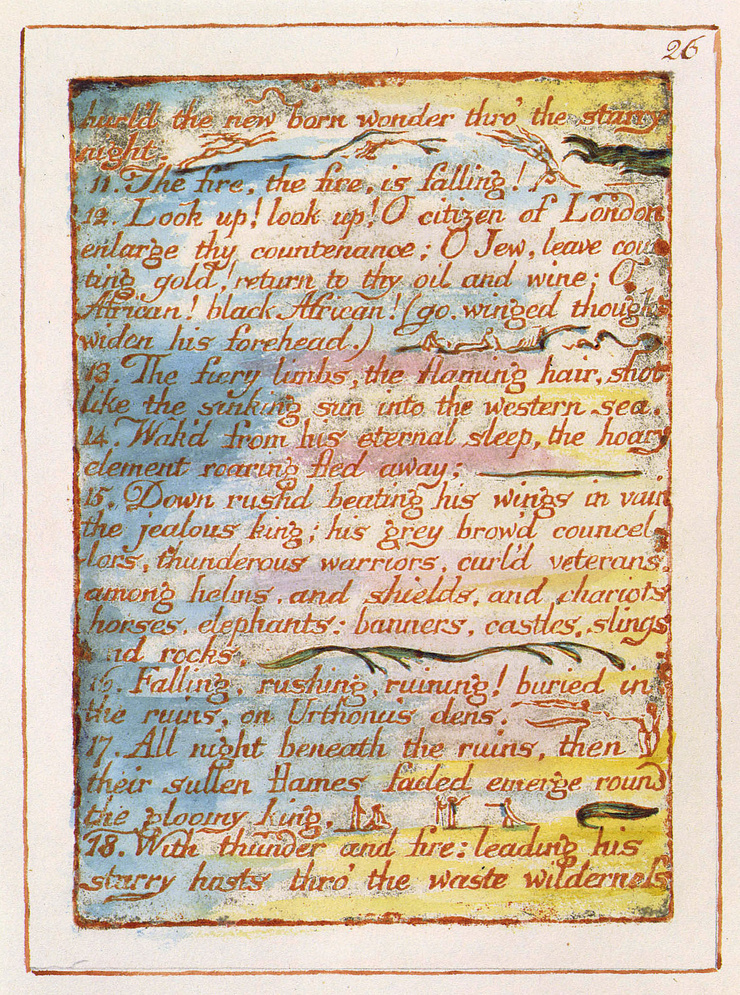 26
hurl'd the new born wonder thro' the starry
night.
11. The fire, the fire, is falling!
12. Look up! look up! O citizen of London
enlarge thy countenance; O Jew, leave coun
ting gold! return to thy oil and wine; O
African! black African! (go. winged thought
widen his forehead.)
13. The fiery limbs, the flaming hair, shot
like the sinking sun into the western sea.
14. Wak'd from his eternal sleep, the hoary
element roaring fled away;
15. Down rush'd beating his wings in vain
the jealous king; his grey brow'd councel-
lors, thunderous warriors, curl'd veterans,
among helms, and shields, and chariots
horses, elephants: banners, castles, slings
and rocks,
16. Falling, rushing, ruining! buried in
the ruins, on Urthona's dens.
17. All night beneath the ruins, then
their sullen flames faded emerge round
the gloomy king,
18. With thunder and fire: leading his
starry hosts thro' the waste wilderneſs